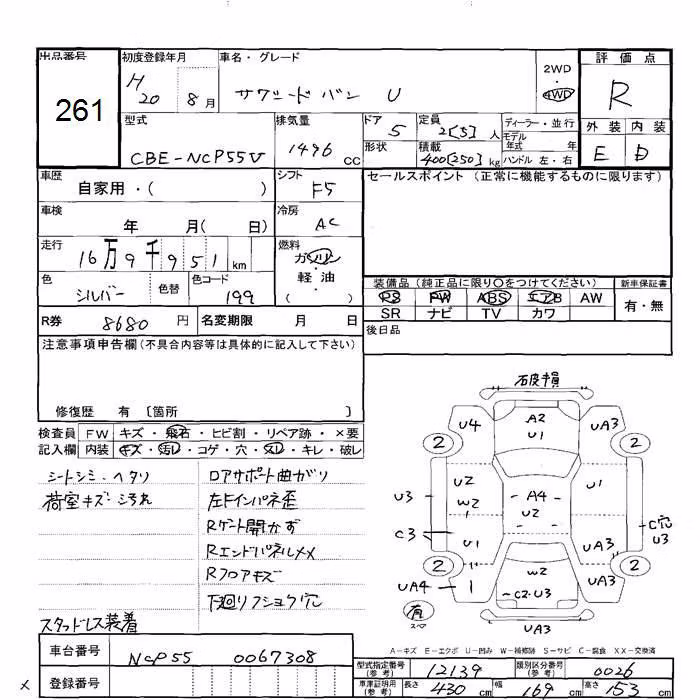 出品番号 261
初度登録年月 H20 8月
車名・グレード サクシードバン U
2WD ・ 4WD
評価点 R
外装 内装
E D
型式 CBE-NCP55V
排気量 1496 cc
ドア 5
形状
定員 2[5] 人
積載 400[250] kg
ディーラー・並行
モデル年式 年
ハンドル 左・右
車歴 自家用・( )
シフト F5
セールスポイント (正常に機能するものに限ります)
車検 年 月( 日)
冷房 AC
走行 16万9千951 km
燃料 ガソリン・軽油 ( )
色 シルバー 色替 色コード 199
装備品 (純正品に限り○をつけてください)
PS PW ABS エアB AW
SR ナビ TV カワ
新車保証書 有・無
R券 8680 円 名変期限 月 日
後日品
注意事項申告欄 (不具合内容等は具体的に記入して下さい)
修復歴 有 〔箇所 〕
検査員記入欄
FW キズ・飛石・ヒビ割・リペア跡・×要
内装 キズ・汚レ・コゲ・穴・スレ・キレ・破レ
シートシミ・ヘタリ
荷室キズ・汚れ
スタッドレス装着
ロアサポート曲がり
左Fインパネ歪
Rゲート開かず
RエンドパネルメメRフロアキズ
下廻りフショク穴
石皮損
U4 A2 U1 UA3
2 2
U3 U2 W2 A4 U2 U1 C穴 U3
C3 U1 UA3
2 2
UA4 1 W2 C2・U3 UA3
有 スペア
UA3
A-キズ E-エクボ U-凹み W-補修跡 S-サビ C-腐食 XX-交換済
車台番号 NCP55 0067308
登録番号
×
型式指定番号(参考) 12139 類別区分番号(参考) 0026
車庫証明用(参考) 長さ 430 cm 幅 169 cm 高さ 153 cm